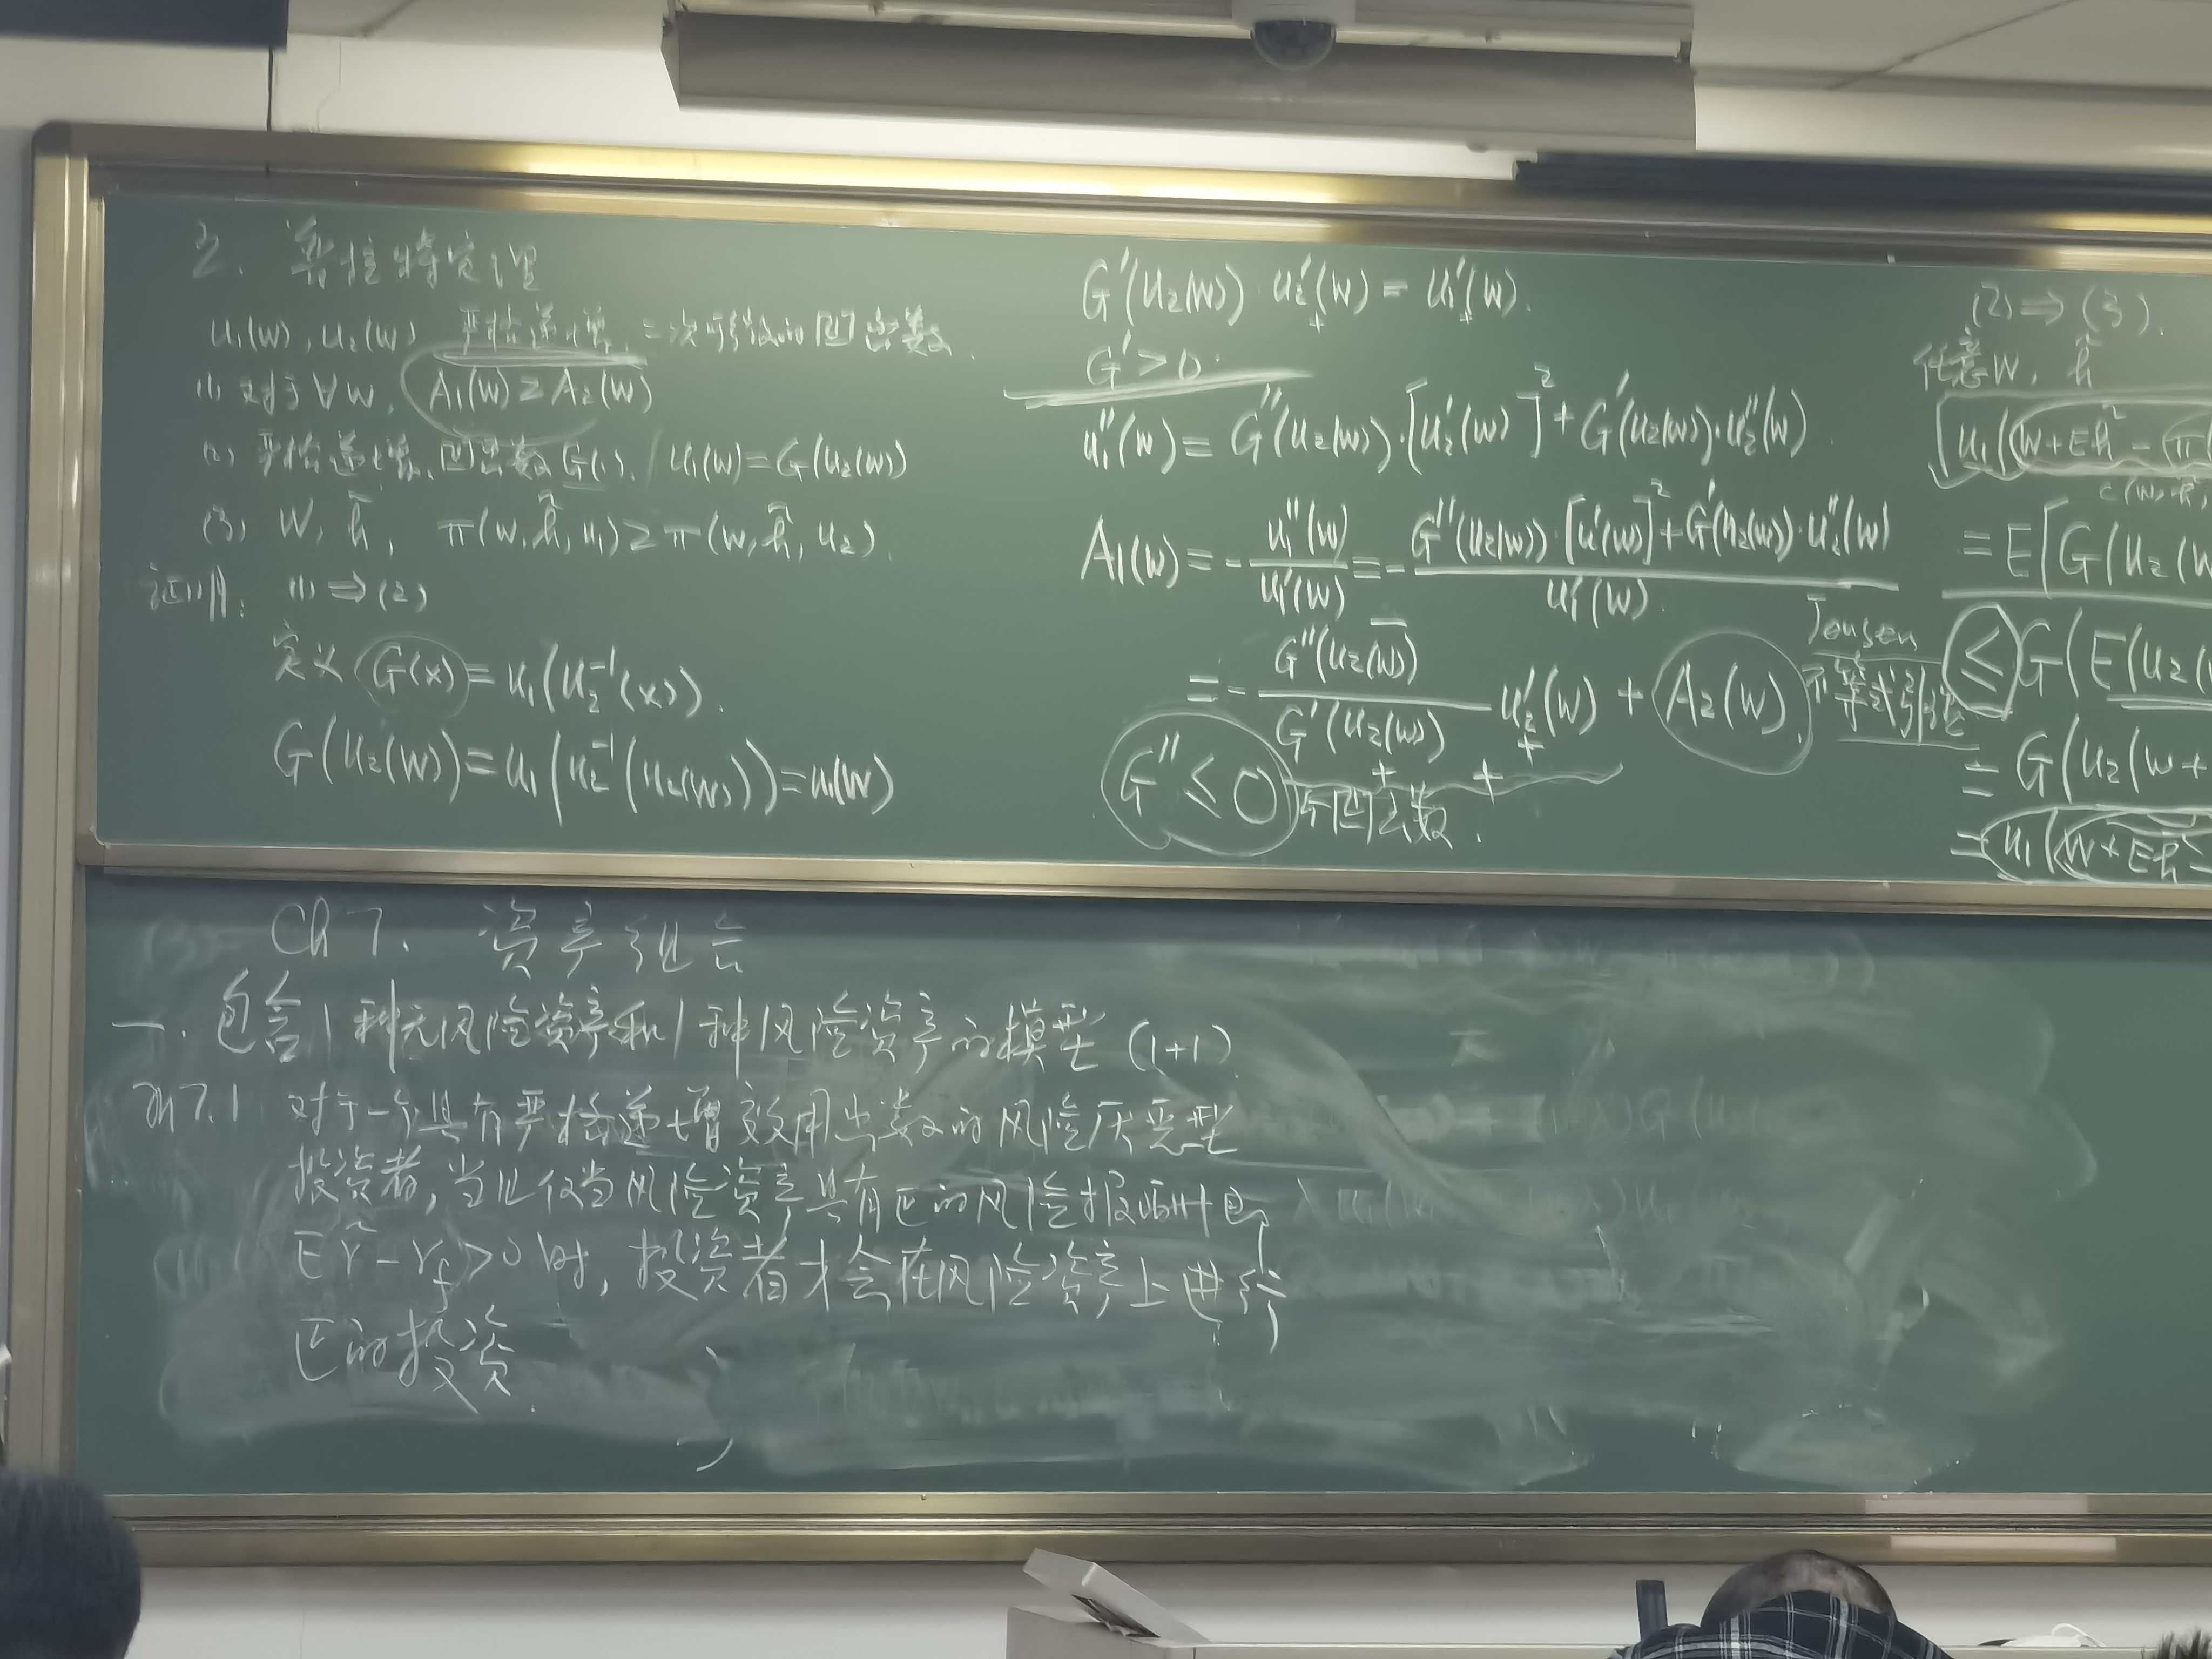 2. 普拉特定理
u₁(w), u₂(w) 严格递增, 二次可微的凹函数.
(1) 对于∀w, A₁(w) ≥ A₂(w)
(2) 严格递增、凹函数G(·), u₁(w)=G(u₂(w))
(3) W, h̃, π(w, h̃, u₁) ≥ π(w, h̃, u₂).
证明: (1) ⇒ (2)
定义 G(x) = u₁(u₂⁻¹(x)).
G(u₂(w)) = u₁(u₂⁻¹(u₂(w))) = u₁(w)
G'(u₂(w)) · u₂'(w) = u₁'(w).
+ +
G' > 0.
u₁''(w) = G''(u₂(w))·[u₂'(w)]² + G'(u₂(w))·u₂''(w)
A₁(w) = - u₁''(w) / u₁'(w) = - G''(u₂(w))·[u'(w)]² + G'(u₂(w))·u₂''(w) / u₁'(w).
= - G''(u₂(w)) / G'(u₂(w)) u₂'(w) + A₂(w)
+ + +
G'' ≤ 0 G凹函数.
(2) ⇒ (3).
任意W, h̃
u₁(W+Eh̃ - π(
= E[G(u₂(w
Jensen
不等式引理
≤ G(E(u₂(
= G(u₂(w+
= u₁(W+Eh̃ -
Ch 7. 资产组合
一. 包含1种无风险资产和1种风险资产的模型 (1+1)
7.1 对于一个具有严格递增效用函数的风险厌恶型
投资者, 当且仅当风险资产具有正的风险报酬即
Er̃ - r_f > 0 时, 投资者才会在风险资产上进行
正的投资.